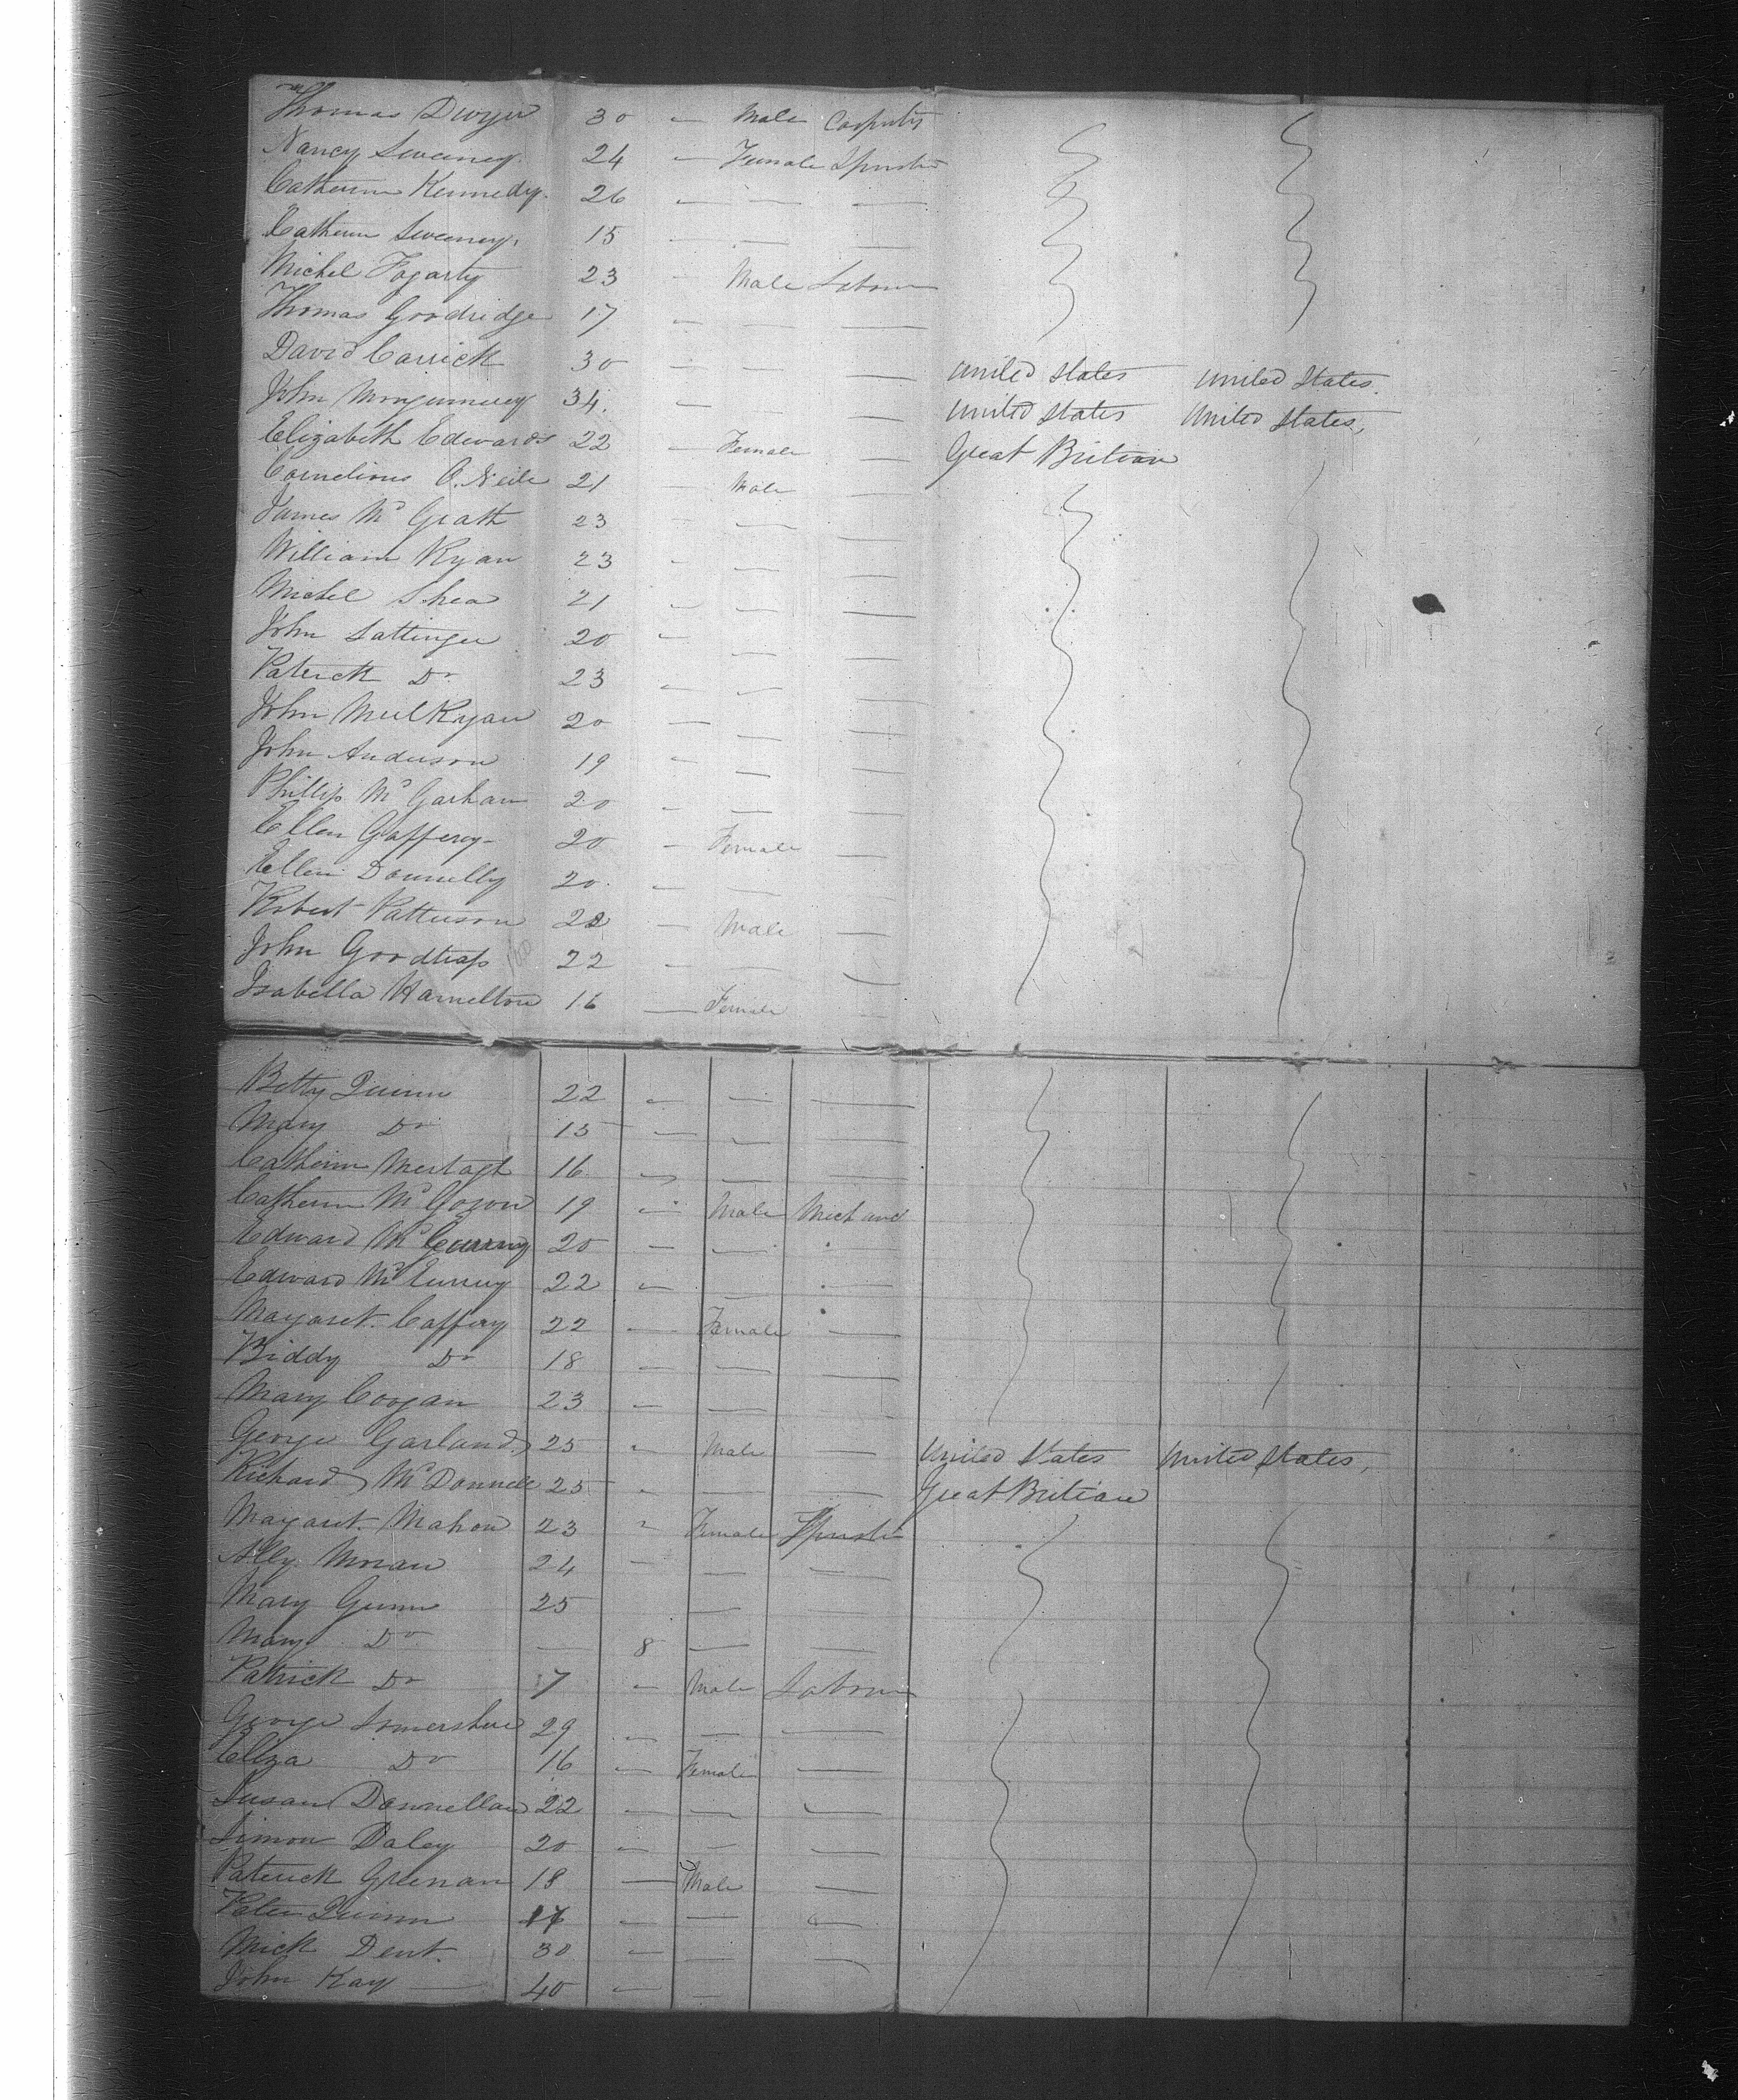 Thomas Dwyer 30 — Male Carpenter
Nancy Sweeney 24 — Female Spinster
Catherine Kennedy 26 — — —
Catherine Sweeney 15 — — —
Michel Fogarty 23 - Male Labour
Thomas Goodridge 17 — — —
David Carrick 30 — — — United States United States.
John Mongumerey 34. — — — United States United States,
Elizabeth Edwards 22 — Female — Great Britian
Cornelius O. Neile 21 — Male —
James Mc Grath 23 - — —
William Ryan 23 - — —
Michel Shea 21 — — —
John Sattinger 20 — — —
Patrick Do 23 — — —
John MulRyan 20 — — —
John Anderson 19 — — —
Phillip Mc Garhan 20 - — —
Ellen Gaffery 20 — Female —
Ellen Donnelly 20. — — —
Robert Patterson 22 — Male —
John Goodtrap 22 — — —
Isabella Hamelton 16 — Female —
Betty Quinn 22 — — —
Mary Do 15 — — —
Catherine Mertagh 16 — — —
Catherine Mc Gowon 19 — Male
Edward Mc 20 — —
Edward Mc 22 — — —
Margaret Caffery 22 — Female —
Biddy Do 18 — — —
Mary Coogan 23 — — —
George Garland 25 - Male — United States United States,
Richard Mc Donnell 25 - — — Great Britian
Margaret Mahon 23 - Female Spinster
Ally Moran 24 — — —
Mary Gunn 25 — —
Mary Do — 8 — —
Patrick Do 7 — Male Labour
George Somershue 29 — — —
Eliza Do 16 — Female —
Susan Donnellan 22 — — —
Simon Daley 20 — — —
Patrick Grenan 18 — Male —
Peter Quinn 17 — — —
Mick Dent. 30 — — —
John Kay 40 — —